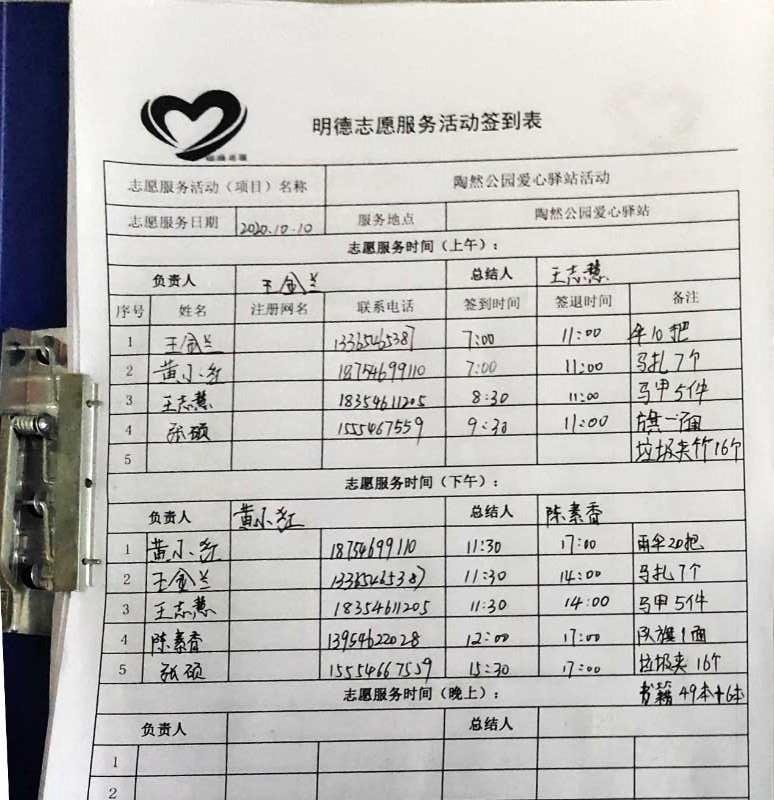 明德志愿服务活动签到表
志愿服务活动（项目）名称 陶然公园爱心驿站活动
志愿服务日期 2020.10.10 服务地点 陶然公园爱心驿站
志愿服务时间（上午）：
负责人 王金兰 总结人 王志慧
序号 姓名 注册网名 联系电话 签到时间 签退时间 备注
1 王金兰 13365465387 7:00 11:00 伞10把
2 黄小红 18754699110 7:00 11:00 马扎7个
3 王志慧 18354611205 8:30 11:00 马甲5件
4 张硕 1555467559 9:30 11:00 旗一面
5 垃圾夹竹16个
志愿服务时间（下午）：
负责人 黄小红 总结人 陈素香
1 黄小红 18754699110 11:30 17:00 雨伞20把
2 王金兰 13365465387 11:30 14:00 马扎7个
3 王志慧 18354611205 11:30 14:00 马甲5件
4 陈素香 13954622028 12:00 17:00 队旗1面
5 张硕 15554667559 15:30 17:00 垃圾夹16个
志愿服务时间（晚上）： 书籍49本+6本
负责人 总结人
1
2